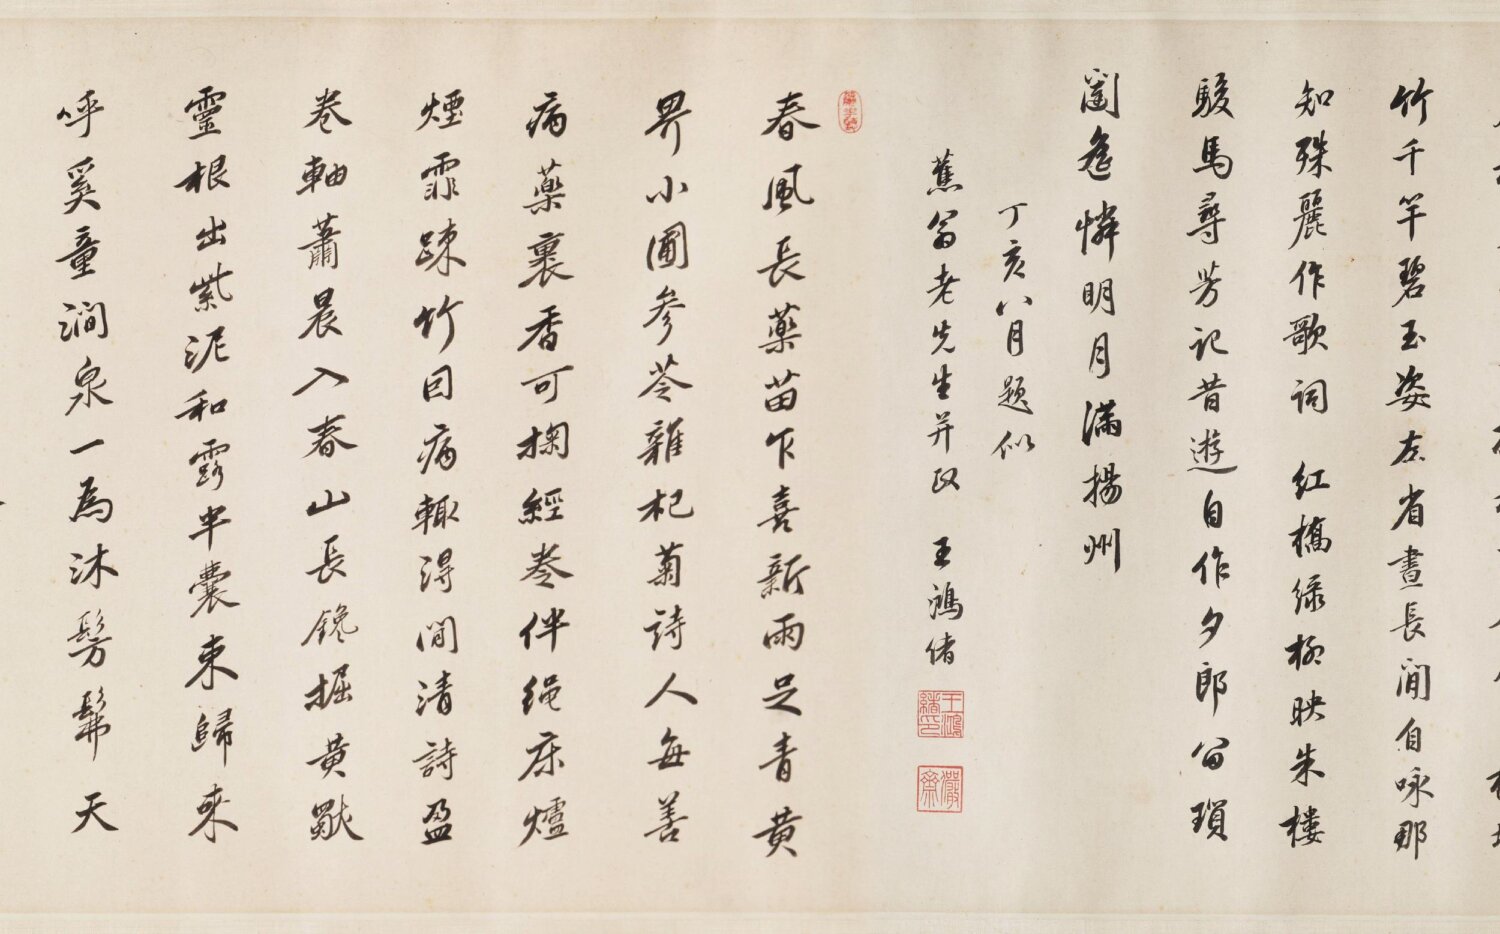 竹千竿碧玉姿左省晝長閒自咏那
知殊麗作歌詞 紅橋綠柳映朱樓
駿馬尋芳記昔遊自作夕郎留瑣
闈爲憐明月滿揚州
丁亥八月題似
蕉翁老先生并政 王鴻緒
王鴻緒印
儼齋
春風長藥苗乍喜新雨足青黃
畀小圃參苓雜杞菊詩人每善
病藥裹香可掬經卷伴繩床爐
煙霏疎竹因病輙得閒清詩盈
卷軸蕭晨入春山長鑱掘黃獸
靈根出紫泥和露半囊束歸來
呼奚童澗泉一爲沐髣髴天